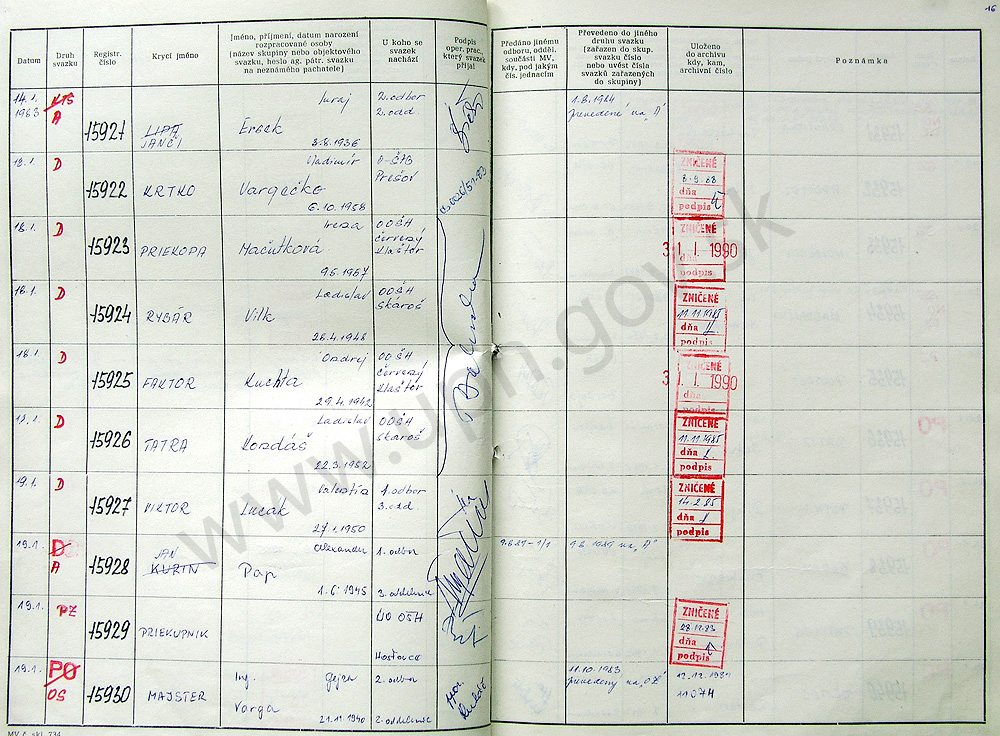 16
Datum
Druh
svazku
Registr.
číslo
Krycí jméno
Jméno, příjmení, datum narození
rozpracované osoby
(název skupiny nebo objektového
svazku, heslo ag. pátr. svazku
na neznámého pachatele)
U koho se
svazek
nachází
Podpis
oper. prac.,
který svazek
přijal
Předáno jinému
odboru, odděl.
součásti MV,
kdy, pod jakým
čís. jednacím
Převedeno do jiného
druhu svazku
(zařazen do skup.
svazku číslo
nebo uvést čísla
svazků zařazených
do skupiny)
Uloženo
do archivu
kdy, kam,
archivní číslo
Poznámka
14.1.
1983
KTS
A
15921
LIPA
JANČI
Juraj
Ersek
3.8.1936
2. odbor
2. odd.
1.8.1984
prevedené na "A"
18.1.
D
15922
KRTKO
Vladimír
Vargečko
6.10.1958
Prešov
ZNIČENÉ
8.9.88
dňa
podpis
18.1.
D
15923
PRIEKOPA
Mačutková
9.6.1967
OOŠH
červený
kláštor
ZNIČENÉ
31. I. 1990
dňa
podpis
18.1.
D
15924
RYBÁR
Ladislav
Vilk
26.4.1948
OOŠH
Skároš
ZNIČENÉ
11.11.1985
dňa
podpis
18.1.
D
15925
FAKTOR
Ondrej
Kuchta
29.4.1942
OOŠH
červený
kláštor
ZNIČENÉ
31. I. 1990
dňa
podpis
18.1.
D
15926
TATRA
Ladislav
Kordáš
22.3.1952
OOŠH
Skároš
ZNIČENÉ
11.11.1985
dňa
podpis
19.1.
D
15927
VIKTOR
Lucák
27.1.1950
1. odbor
3. odd
ZNIČENÉ
14.2.85
dňa
podpis
19.1.
D
A
15928
JAN
KURIN
Alexander
Pap
1.6.1945
1. odbor
3. oddelenie
19.1.
PZ
15929
PRIEKUPNIK
Hosťovce
ZNIČENÉ
28.12.83
dňa
podpis
19.1.
PO
OS
15930
MAJSTER
Ing. Gejza
Varga
21.11.1940
2. odbor
2. oddelenie
11.10.1983
prevedený na "OS"
11074
www.upn.gov.sk